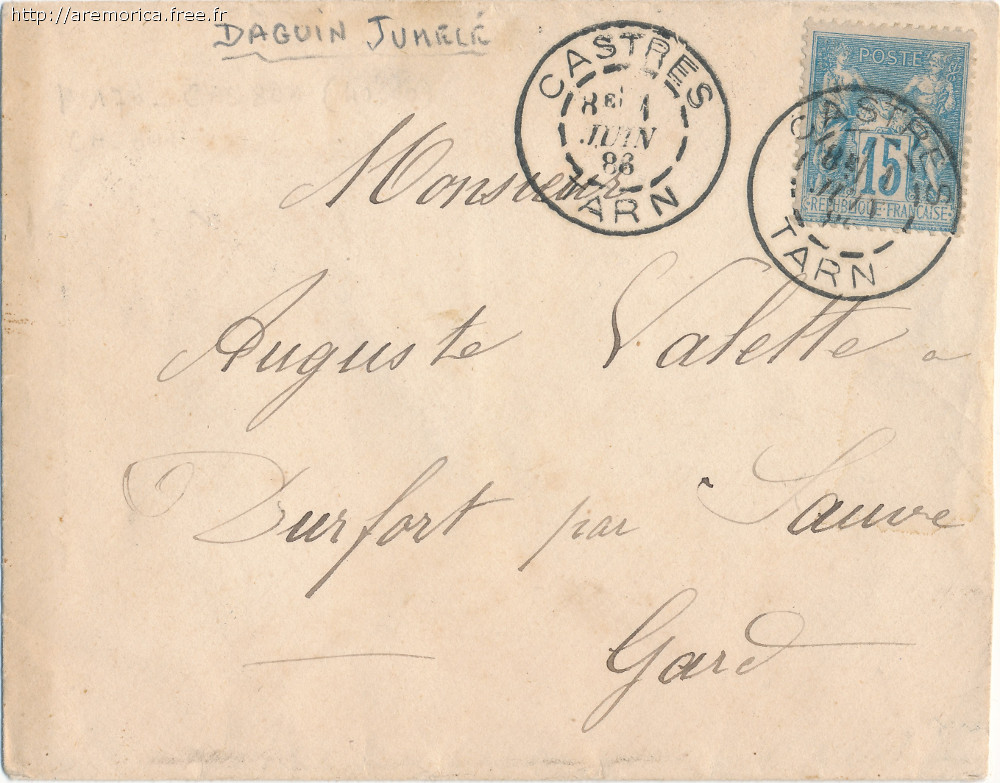 http://aremorica.free.fr
DAGUIN JUMELÉ
CASTRES
8E 1
JUIN
88
TARN
POSTES
CASTRES
8E
15
REPUBLIQUE FRANÇAISE
TARN
Monsieur
Auguste Valette a
Durfort par Sauve
Gard